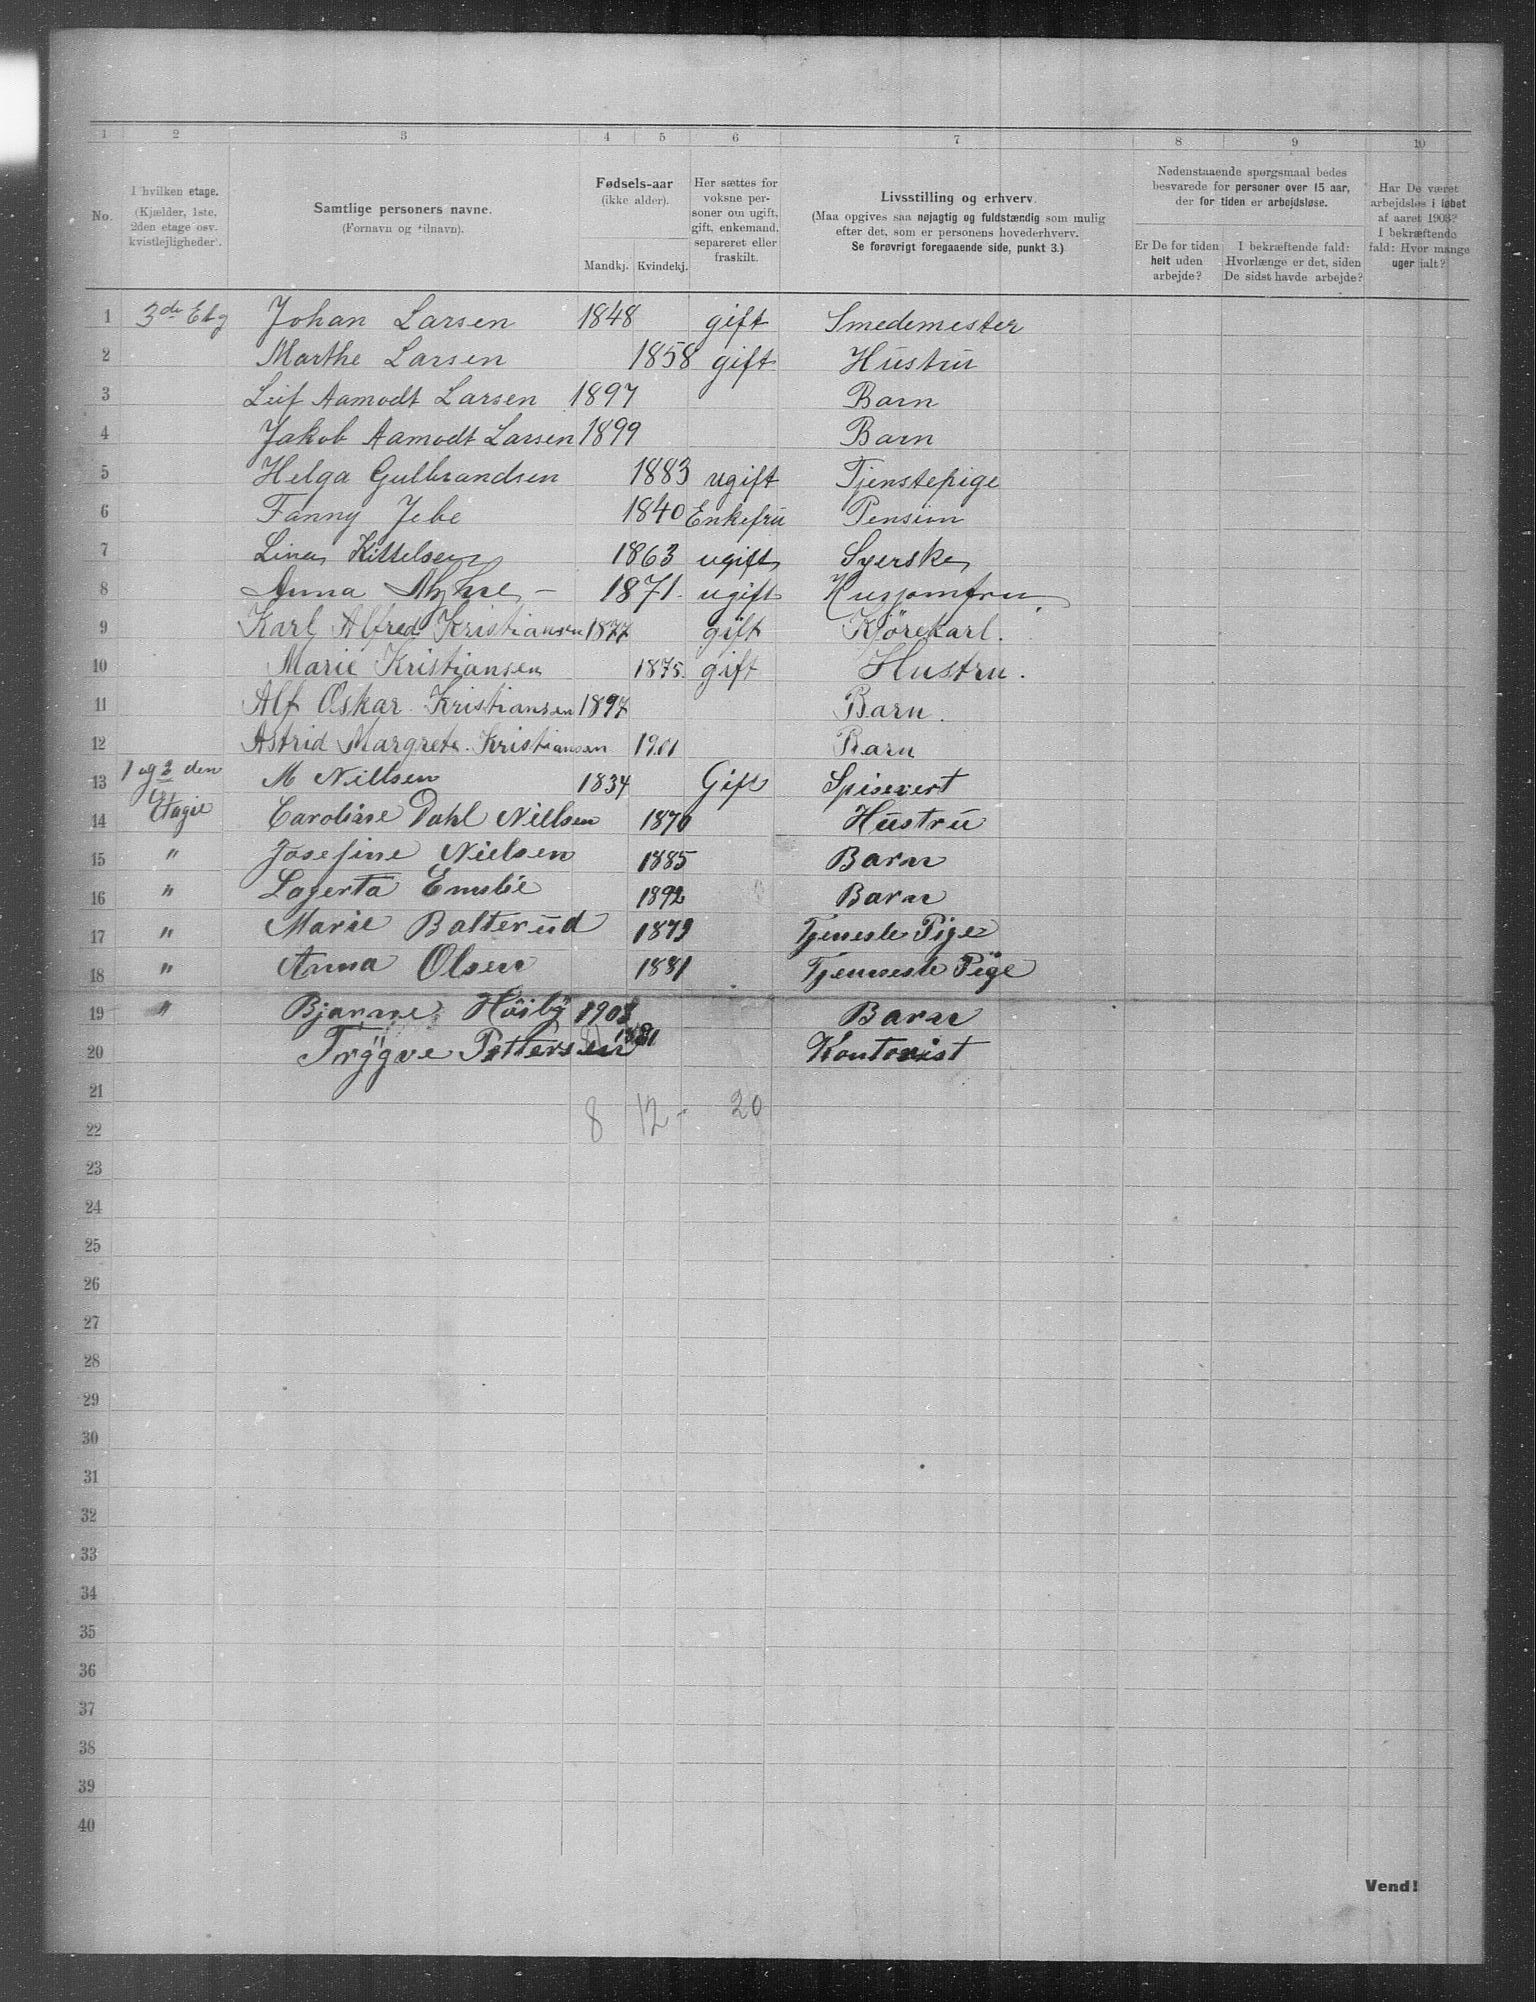 1 2 3 4 5 6 7 8 9 10
No.
I hvilken etage. (Kjælder, 1ste, 2den etage osv. kvistlejligheder).
Samtlige personers navne. (Fornavn og tilnavn).
Fødsels-aar (ikke alder).
Mandkj. Kvindekj.
Her sættes for voksne personer om ugift, gift, enkemand, separeret eller fraskilt.
Livsstilling og erhverv.
(Maa opgives saa nøjagtig og fuldstændig som mulig efter det, som er personens hovederhverv. Se forøvrigt foregaaende side, punkt 3.)
Nedenstaaende spørgsmaal bedes besvarede for personer over 15 aar, der for tiden er arbejdsløse.
Er De for tiden helt uden arbejde?
I bekræftende fald: Hvorlænge er det, siden De sidst havde arbejde?
Har De været arbejdsløs i løbet af aaret 1903? I bekræftende fald: Hvor mange uger ialt?
1 3de Etg Johan Larsen 1848 gift Smedemester
2 Marthe Larsen 1858 gift Hustru
3 Leif Aamodt Larsen 1897 Barn
4 Jakob Aamodt Larsen 1899 Barn
5 Helga Gulbrandsen 1883 ugift Tjenstepige
6 Fanny Jebe 1840 Enkefru Pension
7 Lina Kittelsen 1863 ugift Syerske
8 Anna 1871. ugift Husjomfru
9 Karl Alfred Kristiansen 1877 gift Kjørekarl.
10 Marie Kristiansen 1875. gift Hustru.
11 Alf Oskar Kristiansen 1897 Barn.
12 Astrid Margrete Kristiansen 1901 Barn
13 1 og 2 den M Nillsen 1834 Gift Spisevert
14 Etagie Caroline Dahl Nillsen 1870 Hustru
15 " Josefine Nielsen 1885 Barn
16 " Lagerta Emelie 1892 Barn
17 " Marie Balterud 1879 Tjeneste Pige
18 " Anna Olsen 1881 Tjenneste Pige
19 " Bjarne Höiby 1903 Barn
20 Tryggve Pettersen 1881 Kontorist
21
8 12 - 20
22
23
24
25
26
27
28
29
30
31
32
33
34
35
36
37
38
39
40
Vend!